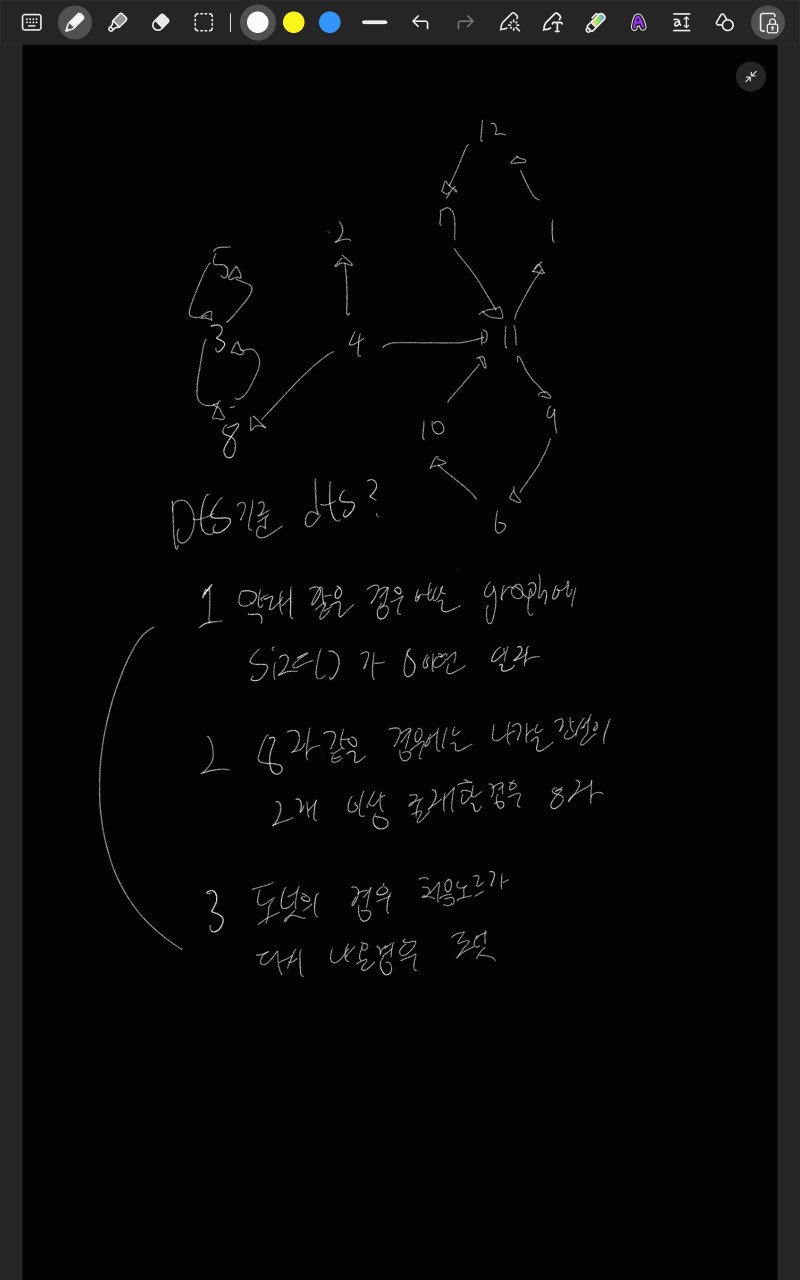 12
7
1
2
5
3
4
11
8
10
9
6
Dfs기준 dfs?
1 막대 짧은 경우에는 graph에
Size()가 0이면 막대
2 8과 같은 경우에는 나가는 간선이
2개 이상 존재할경우 8자
3 도넛의 경우 처음노드가
다시 나올경우 도넛